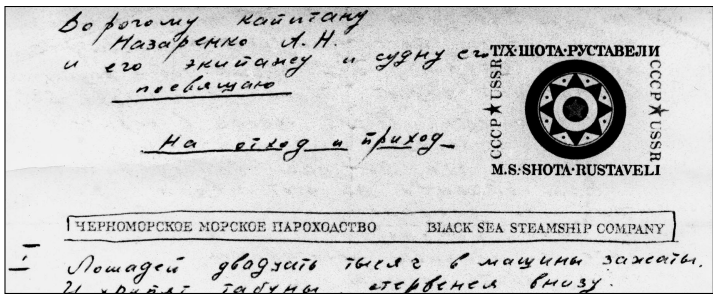 Дорогому капитану
Назаренко А. Н.
и его экипажу и судну его
посвящаю
На отход и приход
Т/Х·ШОТА·РУСТАВЕЛИ
СССР★USSR
СССР★USSR
M.S·SHOTA·RUSTAVELI
ЧЕРНОМОРСКОЕ МОРСКОЕ ПАРОХОДСТВО BLACK SEA STEAMSHIP COMPANY
I
Лошадей двадцать тысяч в машины зажаты.
И храпят табуны, стервенея внизу.